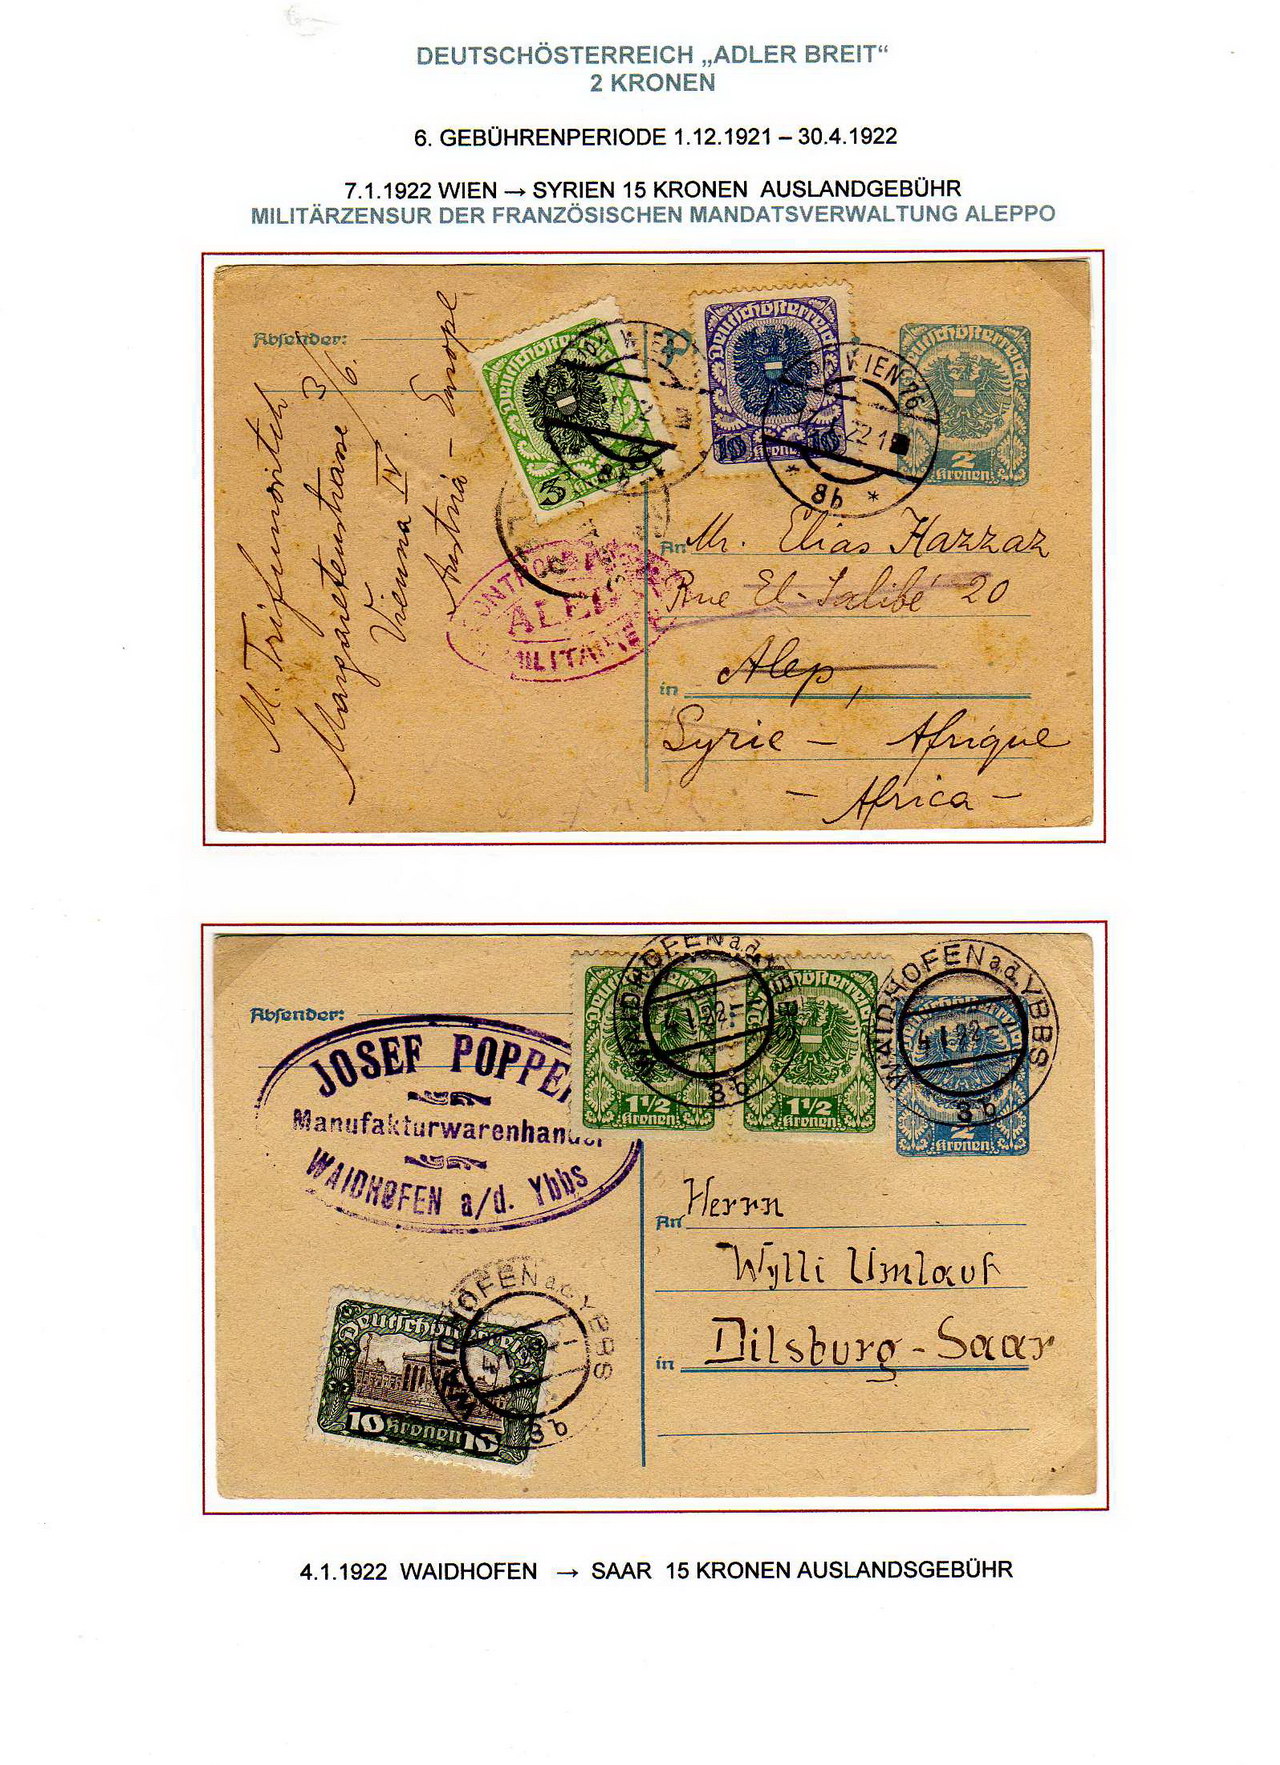 DEUTSCHÖSTERREICH „ADLER BREIT“
2 KRONEN
6. GEBÜHRENPERIODE 1.12.1921 – 30.4.1922
7.1.1922 WIEN → SYRIEN 15 KRONEN AUSLANDGEBÜHR
MILITÄRZENSUR DER FRANZÖSISCHEN MANDATSVERWALTUNG ALEPPO
Absender:
M. Trifunovitch
Margaretenstrasse 3/6.
Vienna IV
Austria – Europe
Deutschösterreich
3
Deutschösterreich
10 Kronen 10
2
Kronen
WIEN 76
22 1
* 8b *
MILITAIRE
An Mr. Elias Hazzaz
Rue El-Salibé 20
in Alep,
Syrie – Afrique
– Africa –
Absender:
JOSEF POPPE
Manufakturwarenhand
WAIDHOFEN a/d. Ybbs
1½
Kronen
1½
Kronen
2
Kronen
WAIDHOFEN a.d. YBBS
4 I 22
3b
WAIDHOFEN a.d. YBBS
4 I 22
3b
An Herrn
Wylli Umlauf
in Dilsburg - Saar
Deutschösterreich
10 Kronen 10
WAIDHOFEN a.d. YBBS
4 I 22
3b
4.1.1922 WAIDHOFEN → SAAR 15 KRONEN AUSLANDSGEBÜHR